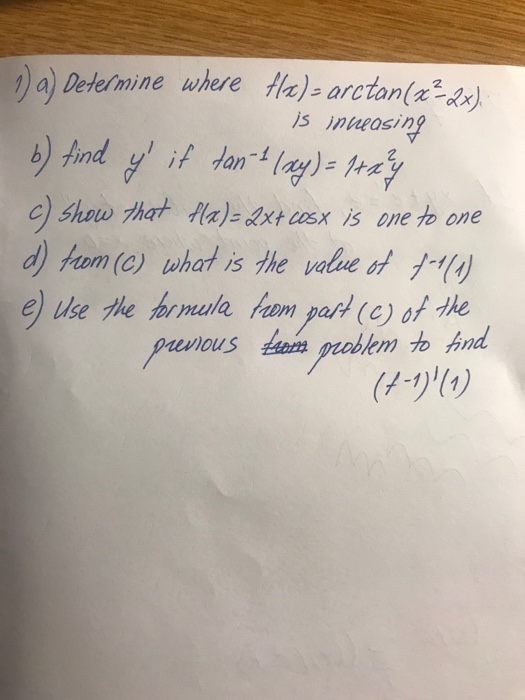 1) a) Determine where f(x) = arctan(x²-2x).
is increasing
b) find y' if tan⁻¹(xy) = 1+x²y
c) Show that f(x) = 2x+cosx is one to one
d) from (c) what is the value of f⁻¹(1)
e) Use the formula from part (c) of the
previous from problem to find
(f-1)'(1)